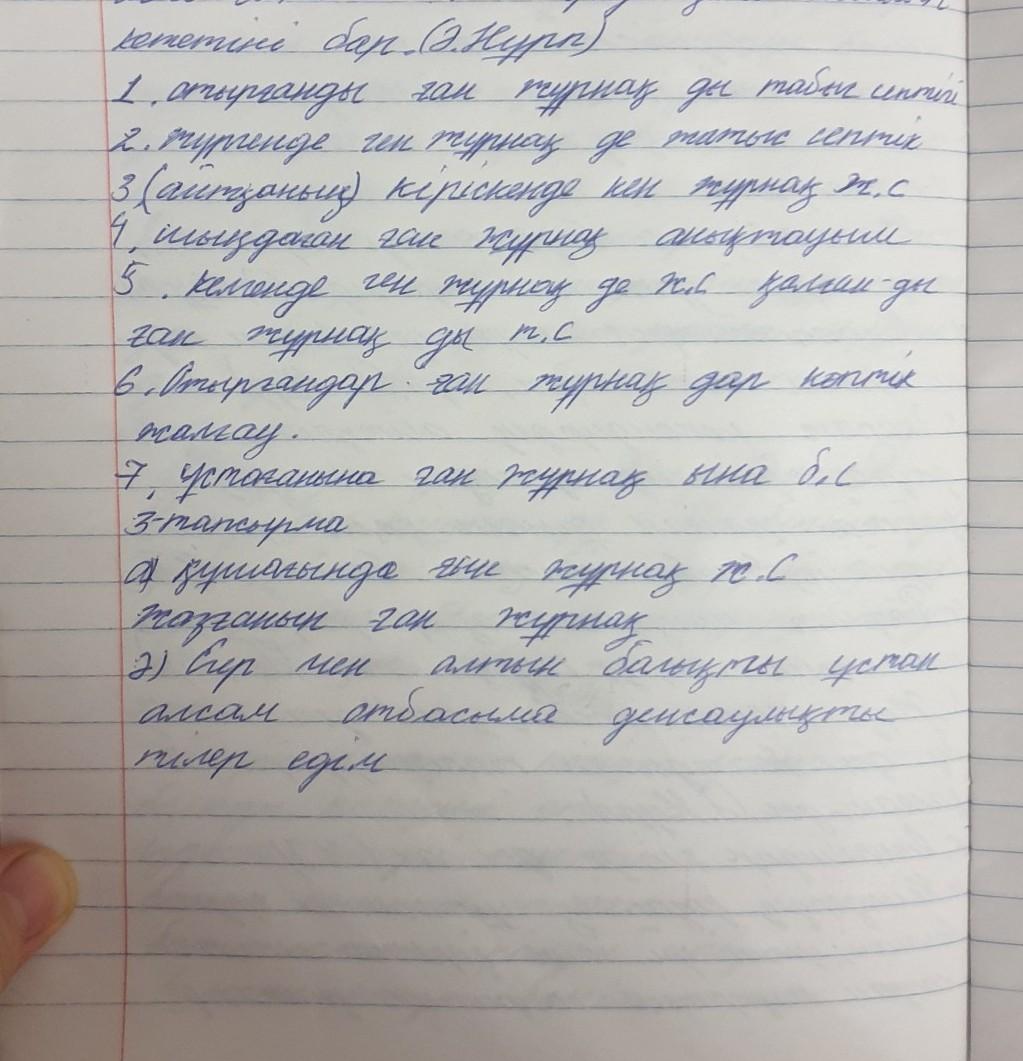 кететіні бар. (Ә.Нурп)
1. отырғанды ған жұрнақ ды табыс септігі
2. жүргенде ген жұрнақ де жатыс септік
3 (айтқаның) кіріскенде кен жұрнақ ж.с
4. шыңдаған ған жұрнақ анықтауыш
5. келгенде ген жұрнақ де ж.с қалған-ды
ған жұрнақ ды т.с
6. Отырғандар ған жұрнақ дар көптік
жалғау.
7. ұстағанына ған жұрнақ ына б.с
3-тапсырма
а) құшағында ғын жұрнақ ж.с
жазғанын ған жұрнақ
ә) Егер мен алтын балықты ұстап
алсам отбасыма денсаулықты
тілер едім